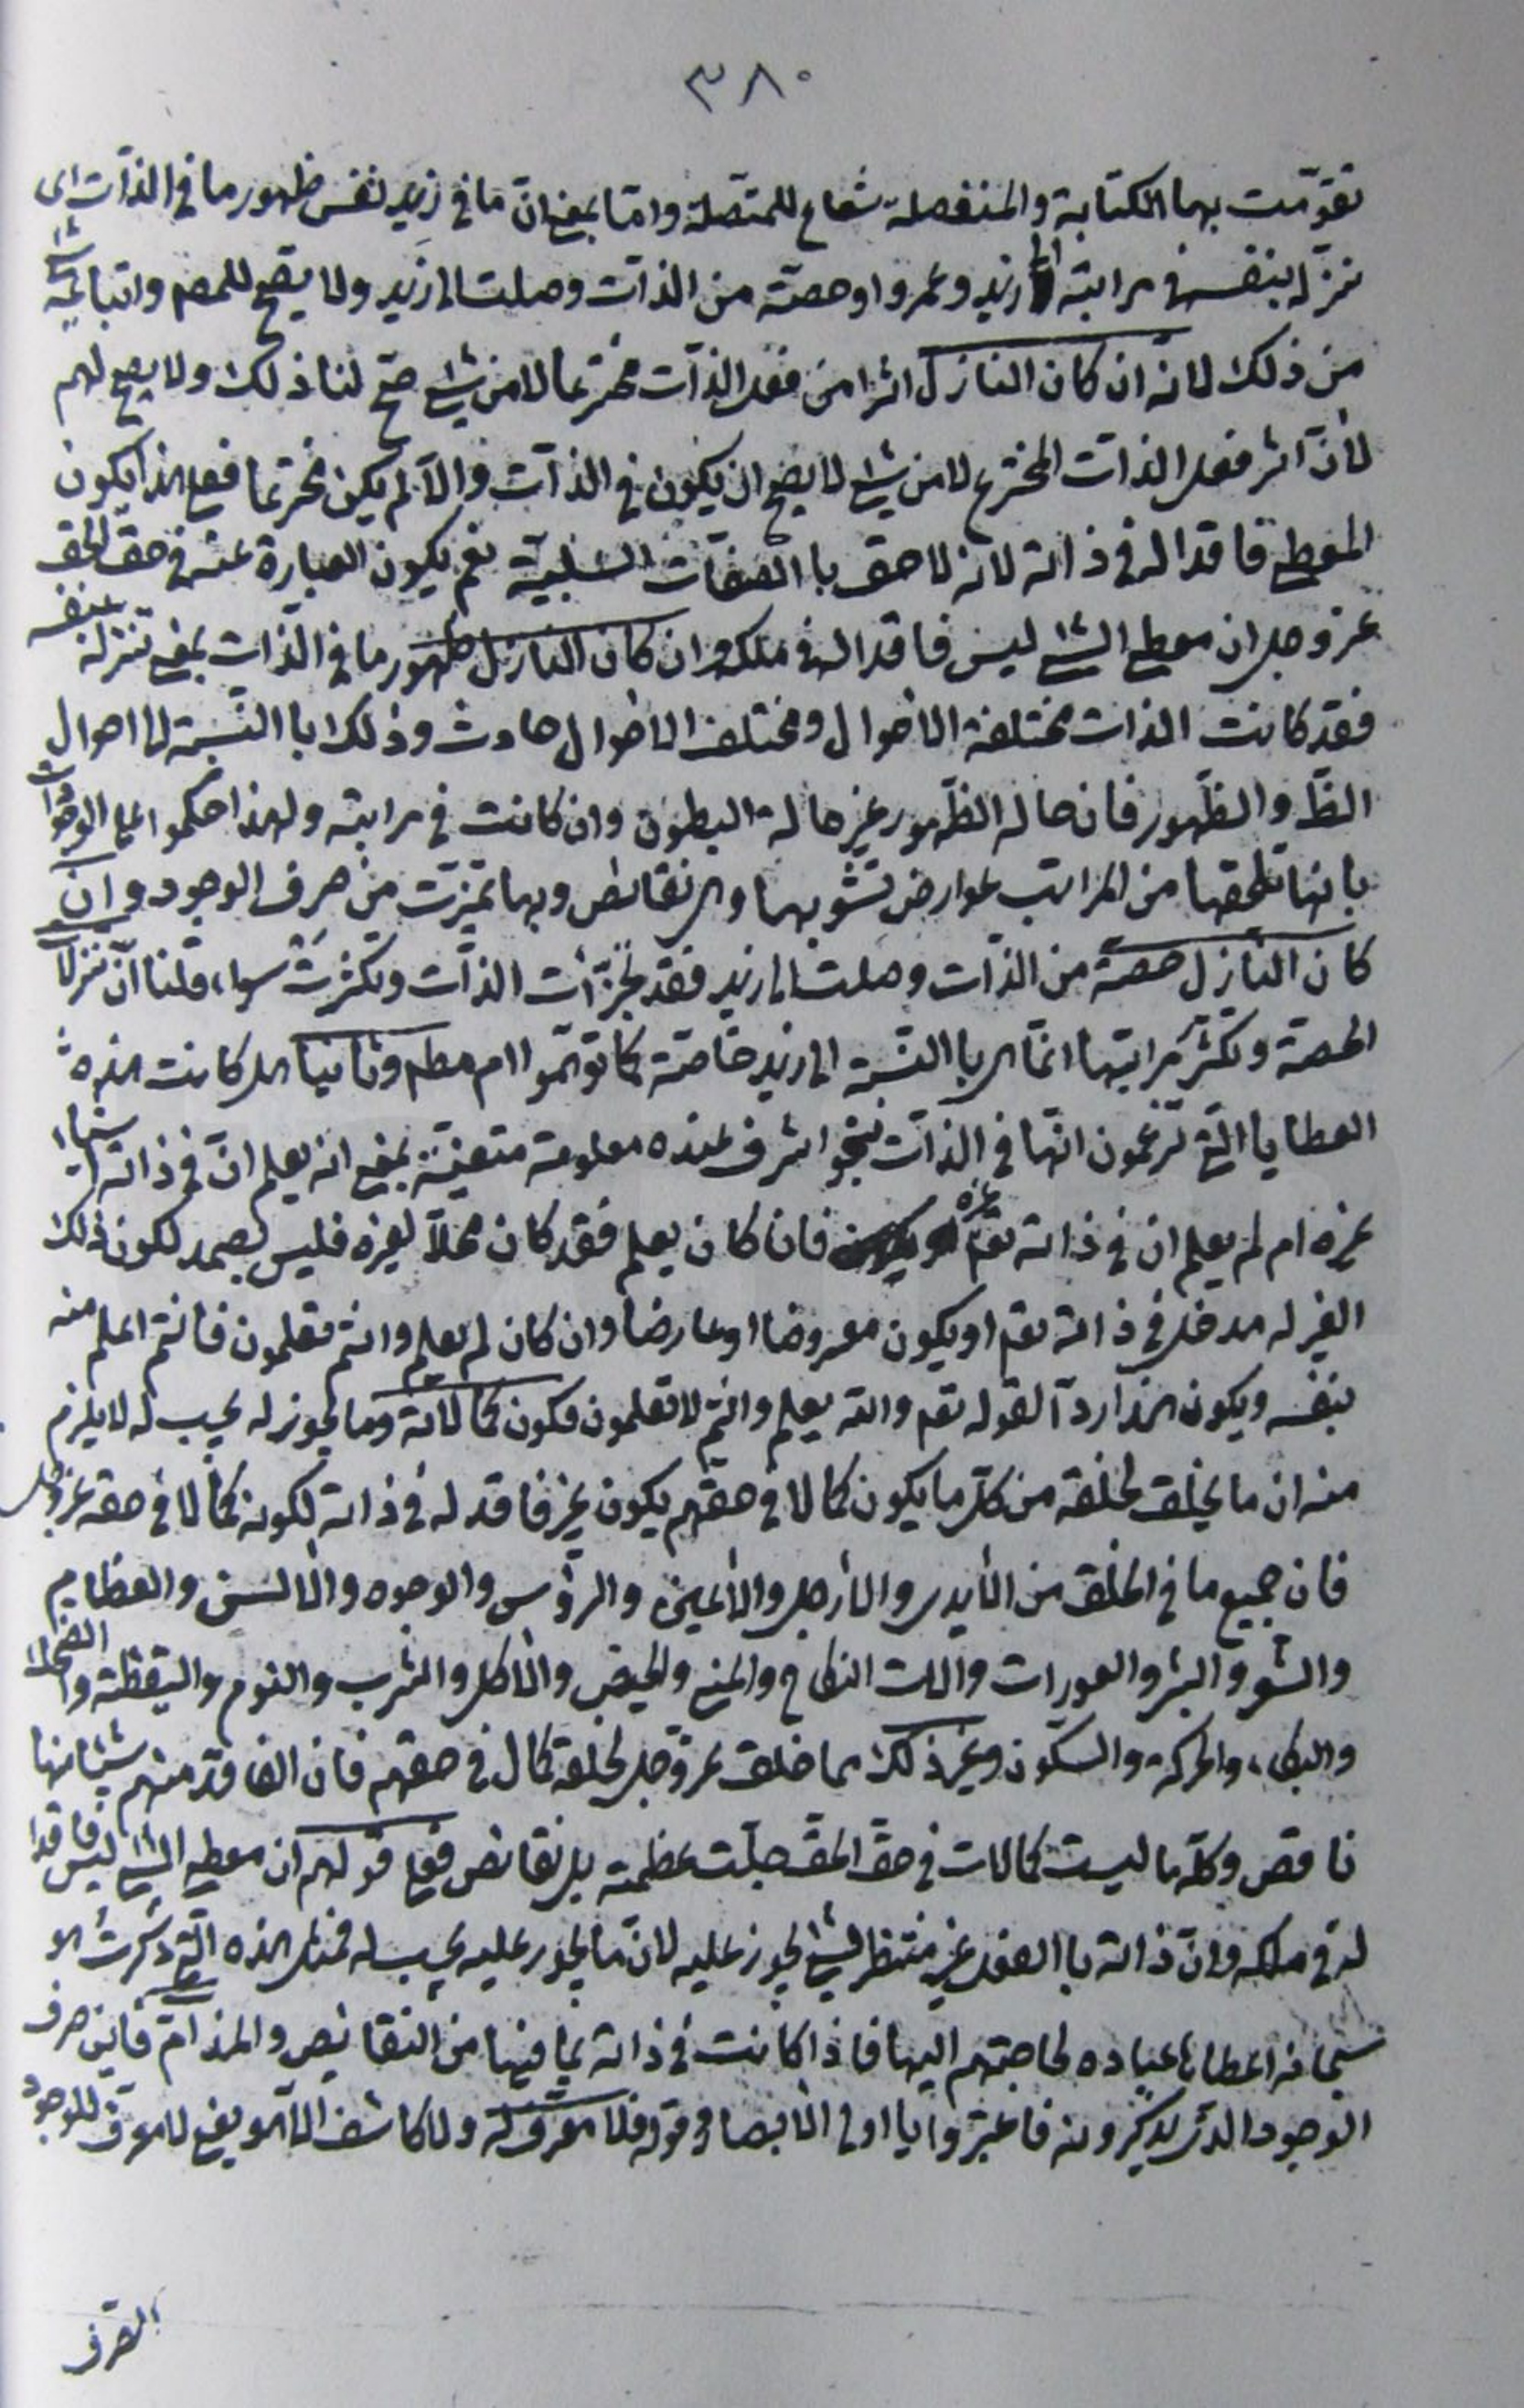 ٣٨٠
تقوّمت بهما الكتابة والمنفصلة شعاع للمتصلة وامّا بمعنى انّ ما فى زيد نفس ظهور ما فى الذّات اى
تنزله بنفسه فى مراتبه زيد وعمرو او حصّة من الذّات وصلت الى زيد ولا يصحّ للمصـ واتباعه شئ
من ذلك لانّه ان كان النازل اثرا من فعل الذّات مخترعا لا من شئ صحّ لنا ذلك ولا يصحّ لهم
لانّ اثر فعل الذات المخترع لا من شئ لا يصحّ ان يكون فى الذّات والّا لم يكن مخترعا فعلى هذا يكون
المعطى فاقدا له فى ذاته لانه لاحق با الصّفات السّلبيّة نعم يكون العبارة عنه فى حق الحق
عز وجل ان معطى الشئ ليس فاقدا له فى ملكه وان كان النازل ظهور ما فى الذّات بمعنى تنزله بنفسه
فقد كانت الذات مختلفة الاحوال ومختلف الاحوال حادث وذلك با النّسبة الى احوال
الظّ والظّهور فان حالة الظّهور غير حالة البطون وان كانت فى مراتبه ولهذا حكموا على الوجودات
بانها تلحقها من المراتب عوارض تشوبها وهى نقائص وبها تميّزت من صرف الوجود وان
كان النازل حصّة من الذّات وصلت الى زيد فقد تجزّأت الذّات وتكثّرت سواء قلنا انّ تنزل
الحصة وتكثّر مراتبها انّما هى با النّسبة الى زيد خاصّة كما توهّموا ام مطم وثانيا هل كانت هذه
العطايا الّتى تزعمون انّها فى الذّات بنحو اشرف عنده معلومة متعيّنة بمعنى انه يعلم انّ فى ذاته شيئا
غيره ام لم يعلم ان فى ذاته تعم غيره فان كان يعلم فقد كان محلّا لغيره فليس بصمد لكون ذلك
الغير له مدخل فى ذاته تعم او يكون معروضا او عارضا وان كان لم يعلم وانتم تعلمون فانتم اعلم منه
بنفسه ويكون هذا ردّا لقوله تعم والله يعلم وانتم لا تعلمون فكون كمالاته وما يجوز له يجب له لا يلزم
منه ان ما يخلق لخلقه من كلّ ما يكون كمالا فى حقّهم يكون غير فاقد له فى ذاته لكونه كمالا فى حقه عز وجل
فان جميع ما فى الخلق من الأيدى والأرجل والأعين والرؤس والوجوه والألسن والعظام
والشعر والبشر والعورات وآلات النكاح والمنى والحيض والأكل والشرب والنوم واليقظة والضحك
والبكاء والحركة والسكون وغير ذلك مما خلق عز وجل لخلقه كمال فى حقهم فان الفاقد منهم شيئا منها
ناقص وكلّها ليست كمالات فى حق الحق جلّت عظمته بل نقائص فعلى قولهم ان معطى الشئ ليس فاقدا
له فى ملكه وان ذاته با الفعل غير منتظر لشئ يجوز عليه لانّ ما يجوز عليه يجب له فمثل هذه الّتى ذكرت هو
سبحانه اعطاها عباده لحاجتهم اليها فاذا كانت فى ذاته بما فيها من النقائص والمذامّ فاين صرف
الوجود الذى يذكرونه فاعتبروا يا اولى الأبصار وقوله فلا معرّف له ولا كاشف الّا هو يعنى لا معرّف للوجود
الصرف